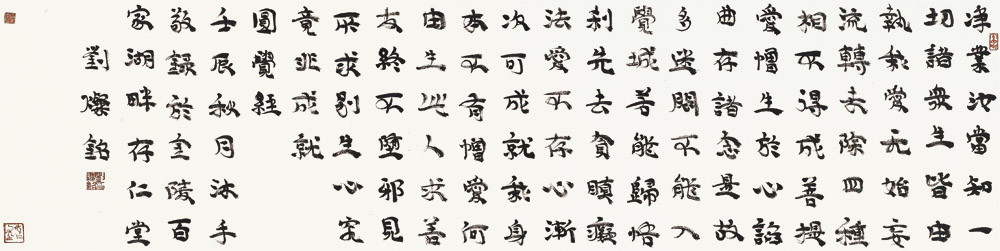 淨業汝當知一
切諸眾生皆由
執我愛无始妄
流轉未除四種
相不得成菩提
愛憎生於心諂
曲存諸念是故
多迷悶不能入
覺城若能歸悟
刹先去貪瞋癡
法愛不存心漸
次可成就我身
本不有憎愛何
由生此人求善
友終不墮邪見
所求別生心究
竟非成就
圓覺經
壬辰秋月沐手
敬録於金陵百
家湖畔存仁堂
劉燦銘